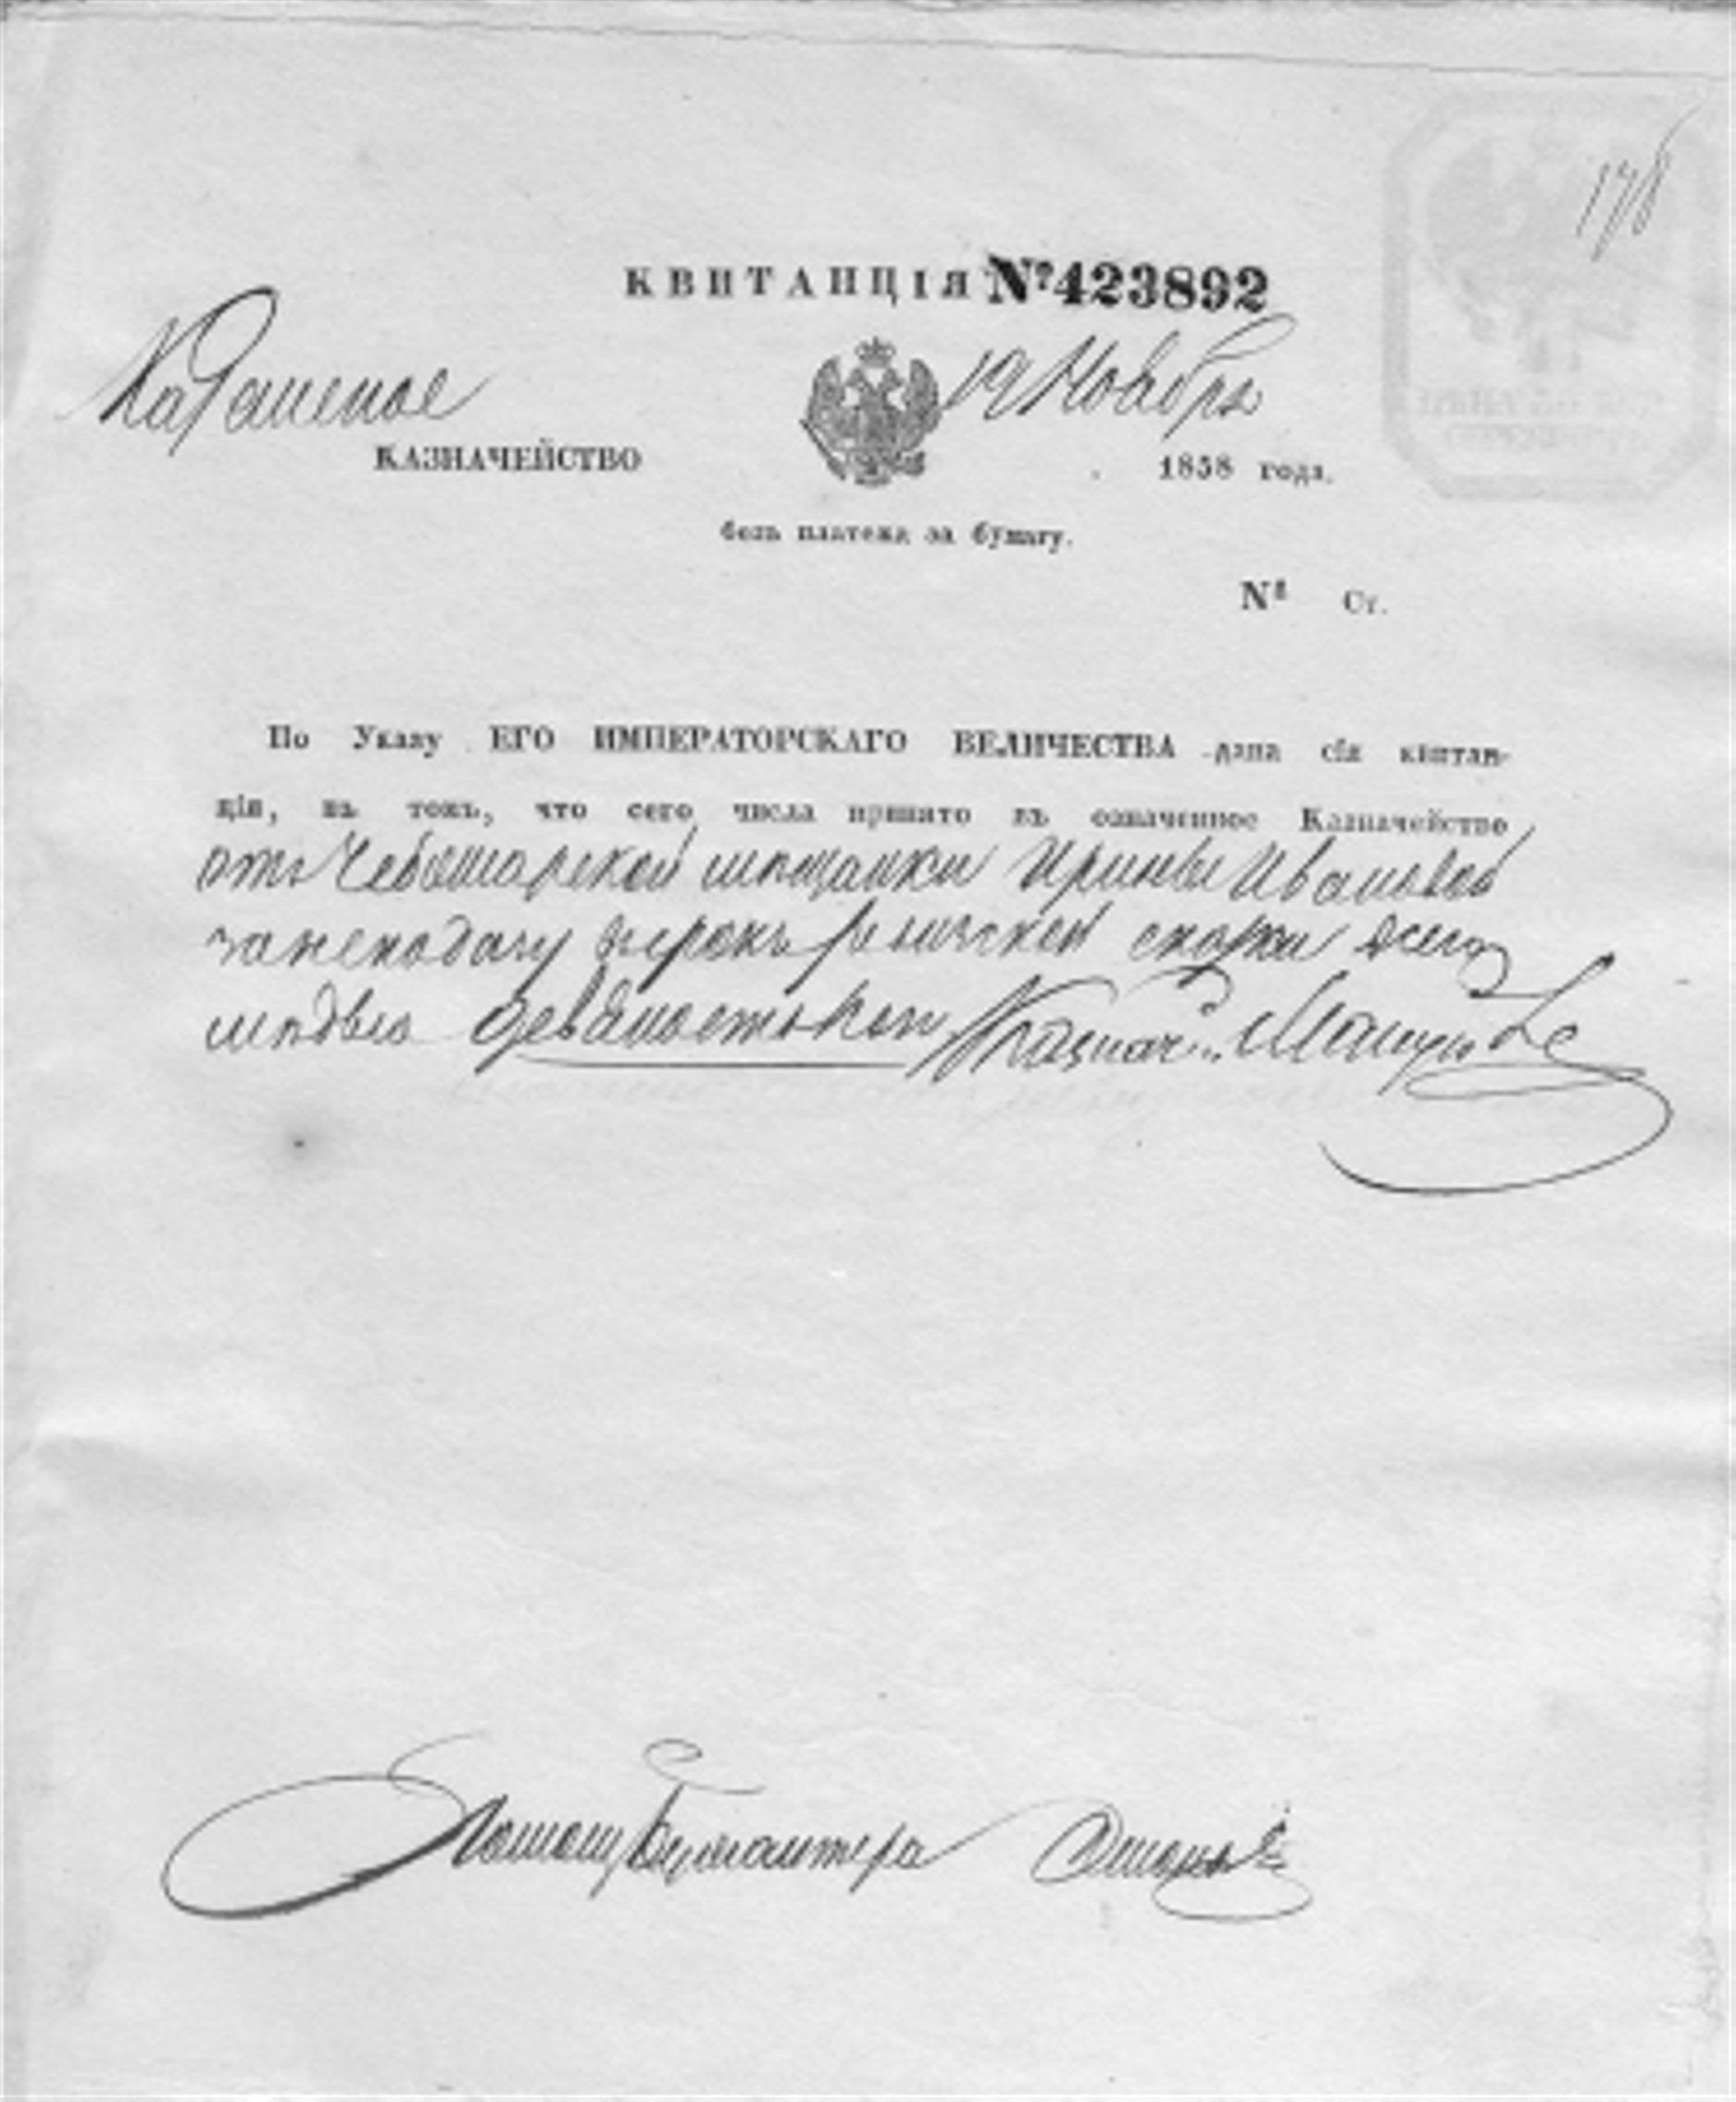 178
КВИТАНЦІЯ № 423892
Казанское 19 Ноября
КАЗНАЧЕЙСТВО 1858 года.
безъ платежа за бумагу.
№ Ст.
По Указу ЕГО ИМПЕРАТОРСКАГО ВЕЛИЧЕСТВА дана сія квитан-
ція, въ томъ, что сего числа принято въ означенное Казначейство
отъ Чебоксарской мѣщанки Ирины Ивановой
за неподачу въ срокъ ревизской сказки всего
девяносто коп Казнач
Помощ Бухгалтера